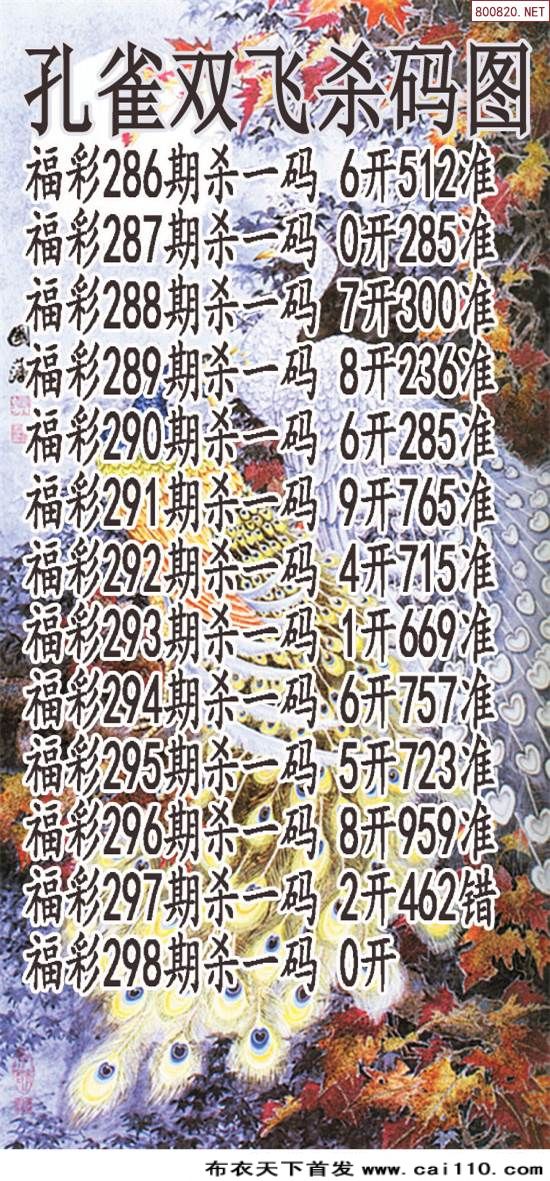 800820.NET
孔雀双飞杀码图
福彩286期杀一码 6开512准
福彩287期杀一码 0开285准
福彩288期杀一码 7开300准
福彩289期杀一码 8开236准
福彩290期杀一码 6开285准
福彩291期杀一码 9开765准
福彩292期杀一码 4开715准
福彩293期杀一码 1开669准
福彩294期杀一码 6开757准
福彩295期杀一码 5开723准
福彩296期杀一码 8开959准
福彩297期杀一码 2开462错
福彩298期杀一码 0开
布衣天下首发 www.cai110.com